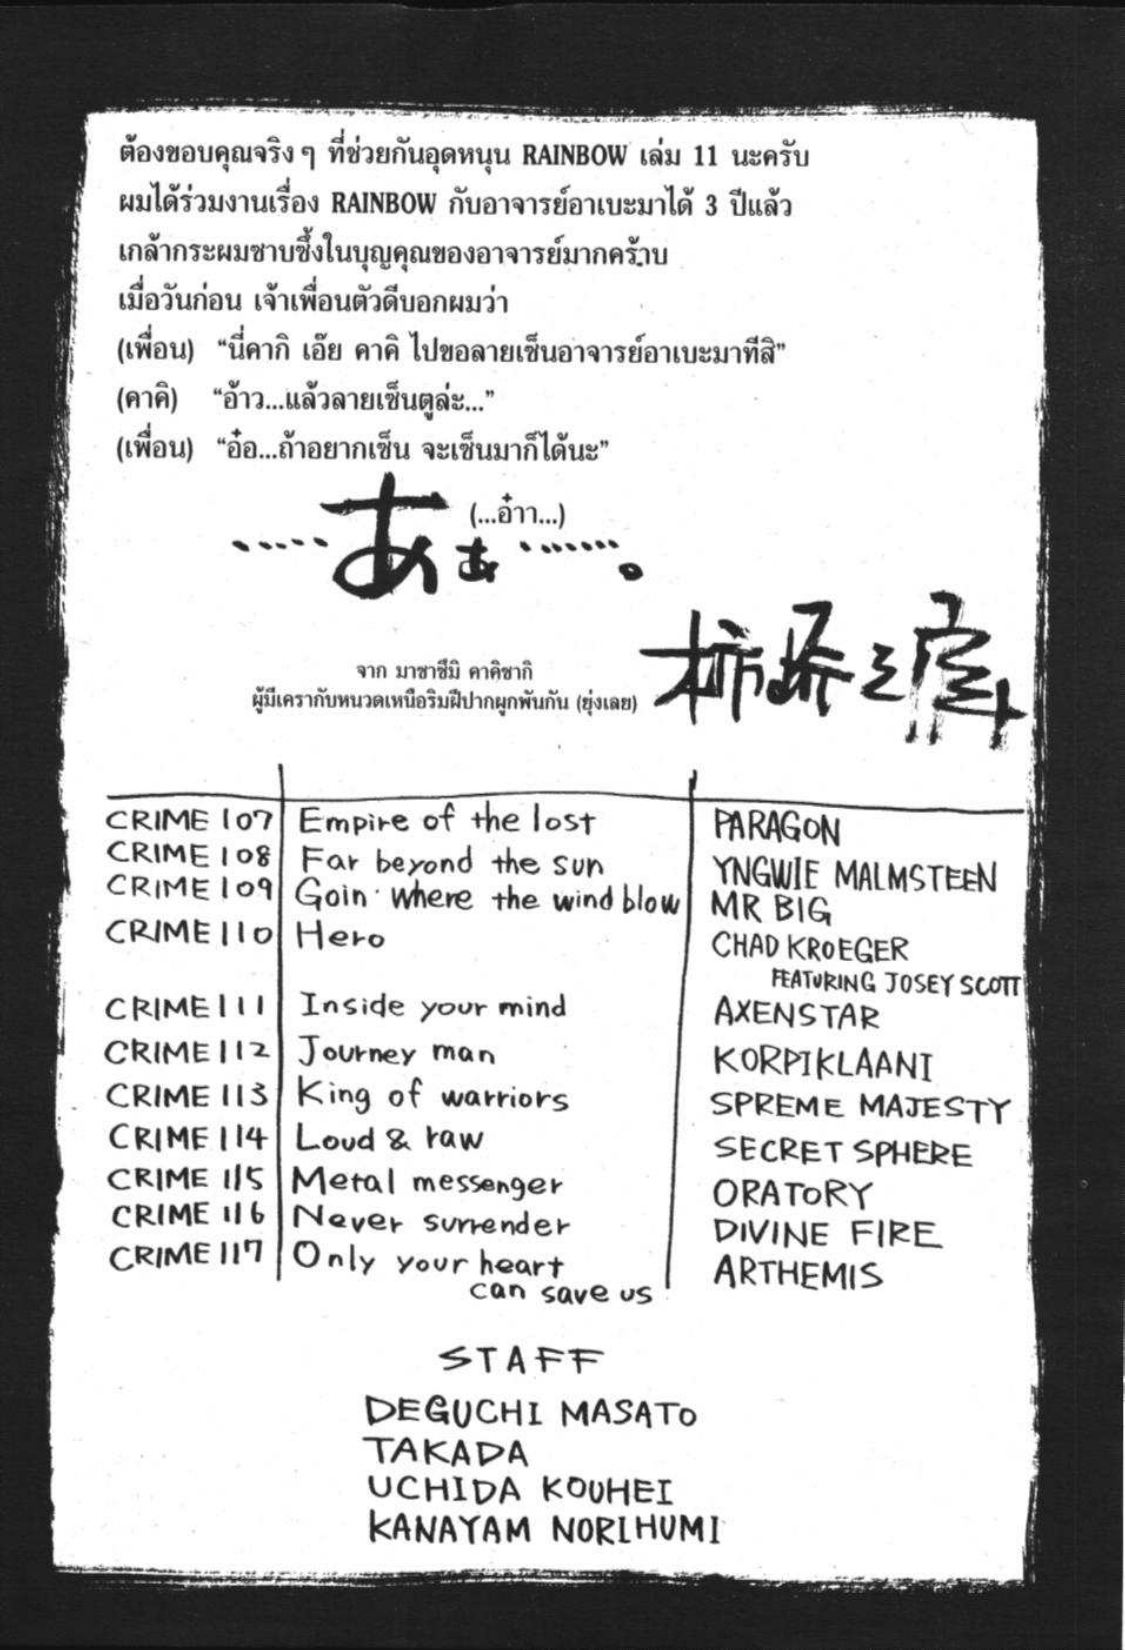 ต้องขอบคุณจริง ๆ ที่ช่วยกันอุดหนุน RAINBOW เล่ม 11 นะครับ
ผมได้ร่วมงานเรื่อง RAINBOW กับอาจารย์อาเบะมาได้ 3 ปีแล้ว
เกล้ากระผมซาบซึ้งในบุญคุณของอาจารย์มากคร้าบ
เมื่อวันก่อน เจ้าเพื่อนตัวดีบอกผมว่า
(เพื่อน) “นี่คากิ เอ๊ย คาคิ ไปขอลายเซ็นอาจารย์อาเบะมาทีสิ”
(คาคิ) “อ้าว...แล้วลายเซ็นตูล่ะ...”
(เพื่อน) “อ๋อ...ถ้าอยากเซ็น จะเซ็นมาก็ได้นะ”
(...อ๋าา...)
.....あぁ.......。
柿崎正澄
จาก มาซาซึมิ คาคิซากิ
ผู้มีเครากับหนวดเหนือริมฝีปากผูกพันกัน (ยุ่งเลย)
CRIME 107 Empire of the lost PARAGON
CRIME 108 Far beyond the sun YNGWIE MALMSTEEN
CRIME 109 Goin' where the wind blow MR BIG
CRIME 110 Hero CHAD KROEGER
FEATURING JOSEY SCOTT
CRIME 111 Inside your mind AXENSTAR
CRIME 112 Journey man KORPIKLAANI
CRIME 113 King of warriors SPREME MAJESTY
CRIME 114 Loud & raw SECRET SPHERE
CRIME 115 Metal messenger ORATORY
CRIME 116 Never surrender DIVINE FIRE
CRIME 117 Only your heart ARTHEMIS
can save us
STAFF
DEGUCHI MASATO
TAKADA
UCHIDA KOUHEI
KANAYAM NORIHUMI